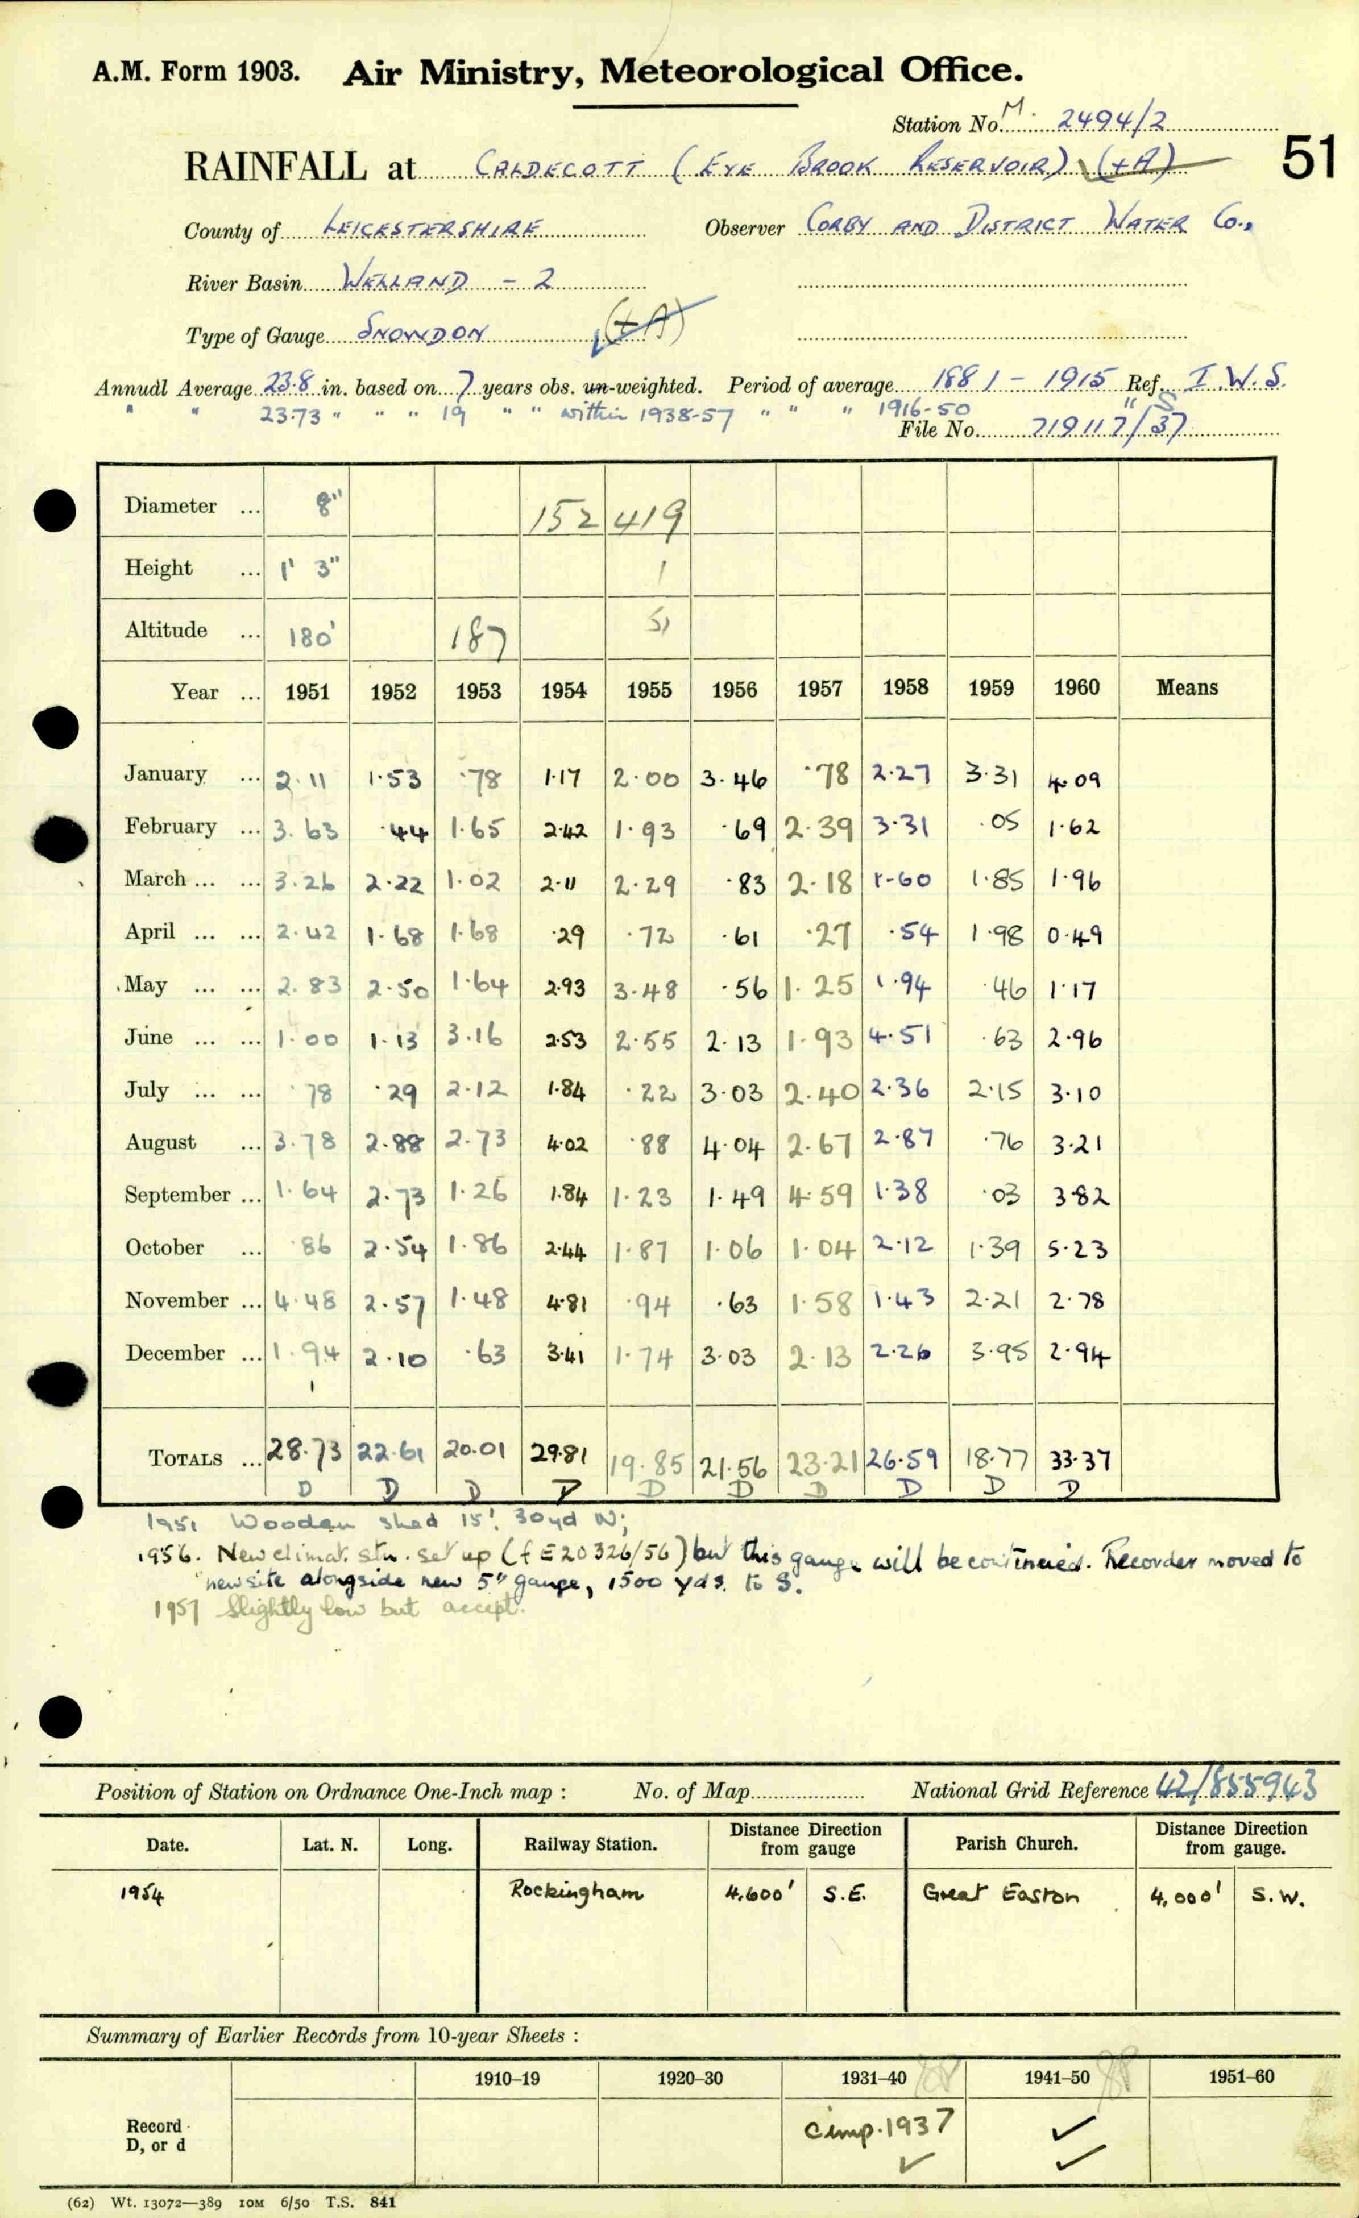 A.M. Form 1903. Air Ministry, Meteorological Office.
Station No. M. 2494/2
RAINFALL at CALDECOTT (EYE BROOK RESERVOIR) (+A)
51
County of LEICESTERSHIRE Observer CORBY AND DISTRICT WATER Co.,
River Basin WELLAND - 2
Type of Gauge SNOWDON (+A)
Annual Average 23.8 in. based on 7 years obs. un-weighted. Period of average 1881 - 1915 Ref. I.W.S.
" " 23.73 " " " 19 " " within 1938-57 " " " 1916-50 "
File No. 719117/37
Diameter ... 8" 152 419
Height ... 1' 3" 1
Altitude ... 180' 187
Year ... 1951 1952 1953 1954 1955 1956 1957 1958 1959 1960 Means
January ... 2.11 1.53 .78 1.17 2.00 3.46 .78 2.27 3.31 4.09
February ... 3.63 .44 1.65 2.42 1.93 .69 2.39 3.31 .05 1.62
March ... ... 3.26 2.22 1.02 2.11 2.29 .83 2.18 1.60 1.85 1.96
April ... ... 2.42 1.68 1.68 .29 .72 .61 .27 .54 1.98 0.49
May ... ... 2.83 2.50 1.64 2.93 3.48 .56 1.25 1.94 .46 1.17
June ... ... 1.00 1.13 3.16 2.53 2.55 2.13 1.93 4.51 .63 2.96
July ... ... .78 .29 2.12 1.84 .22 3.03 2.40 2.36 2.15 3.10
August ... 3.78 2.88 2.73 4.02 .88 4.04 2.67 2.87 .76 3.21
September ... 1.64 2.73 1.26 1.84 1.23 1.49 4.59 1.38 .03 3.82
October ... .86 2.54 1.86 2.44 1.87 1.06 1.04 2.12 1.39 5.23
November ... 4.48 2.57 1.48 4.81 .94 .63 1.58 1.43 2.21 2.78
December ... 1.94 2.10 .63 3.41 1.74 3.03 2.13 2.26 3.95 2.94
TOTALS ... 28.73 22.61 20.01 29.81 19.85 21.56 23.21 26.59 18.77 33.37
D D D D D D D D D D
1951 Wooden shed 15', 30yd N;
1956. New climat. stn. set up (f E20326/56) but this gauge will be continued. Recorder moved to
new site alongside new 5" gauge, 1500 yds. to S.
1957 Slightly low but accept.
Position of Station on Ordnance One-Inch map : No. of Map National Grid Reference 42/855943
Date. Lat. N. Long. Railway Station. Distance Direction from gauge Parish Church. Distance Direction from gauge.
1954 Rockingham 4,600' S.E. Great Easton 4,000' S.W.
Summary of Earlier Records from 10-year Sheets :
1910–19 1920–30 1931–40 1941–50 1951–60
Record D, or d comp. 1937 ✓ ✓ ✓
(62) Wt. 13072—389 10M 6/50 T.S. 841